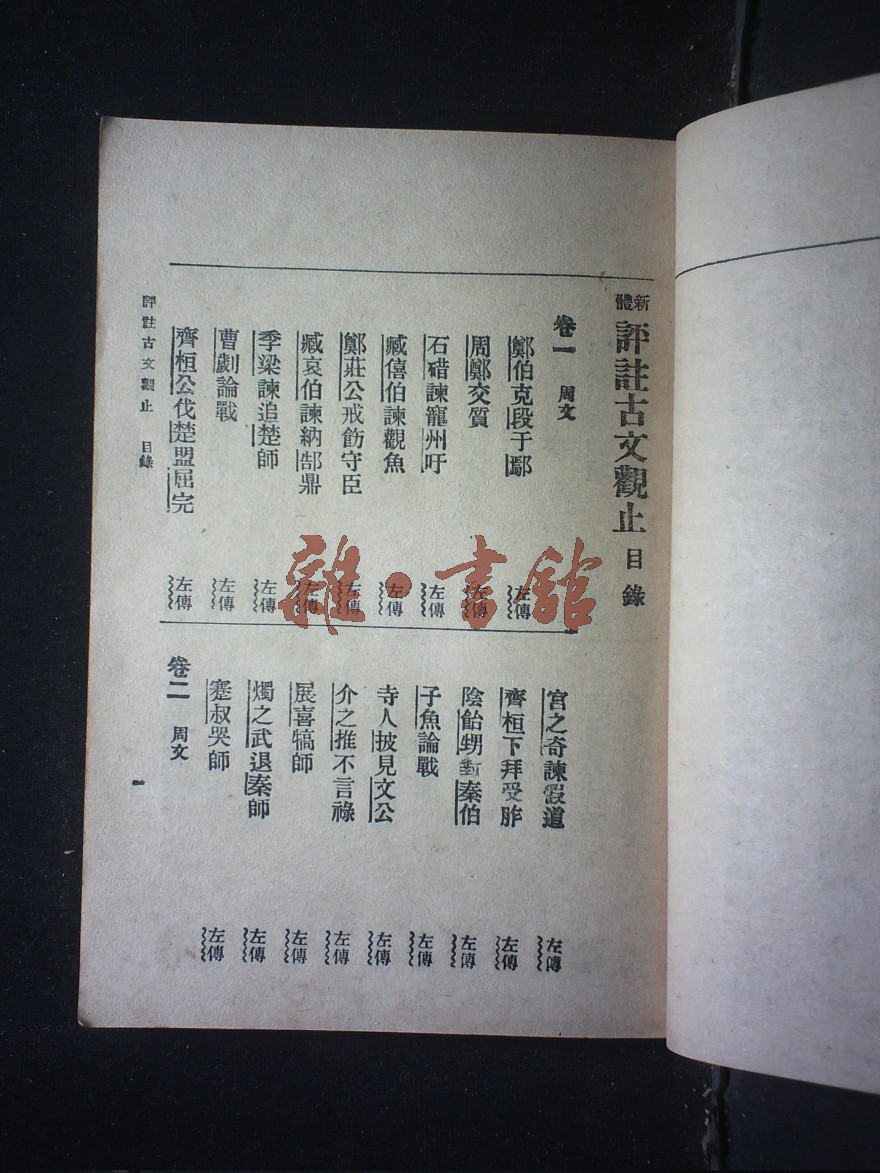 新體評註古文觀止目錄
卷一 周文
鄭伯克段于鄢 左傳
周鄭交質 左傳
石碏諫寵州吁 左傳
臧僖伯諫觀魚 左傳
鄭莊公戒飭守臣 左傳
臧哀伯諫納郜鼎 左傳
季梁諫追楚師 左傳
曹劌論戰 左傳
齊桓公伐楚盟屈完 左傳
宮之奇諫假道 左傳
齊桓下拜受胙 左傳
陰飴甥對秦伯 左傳
子魚論戰 左傳
寺人披見文公 左傳
介之推不言祿 左傳
展喜犒師 左傳
燭之武退秦師 左傳
蹇叔哭師 左傳
卷二 周文
評註古文觀止 目錄
一
雜·書館